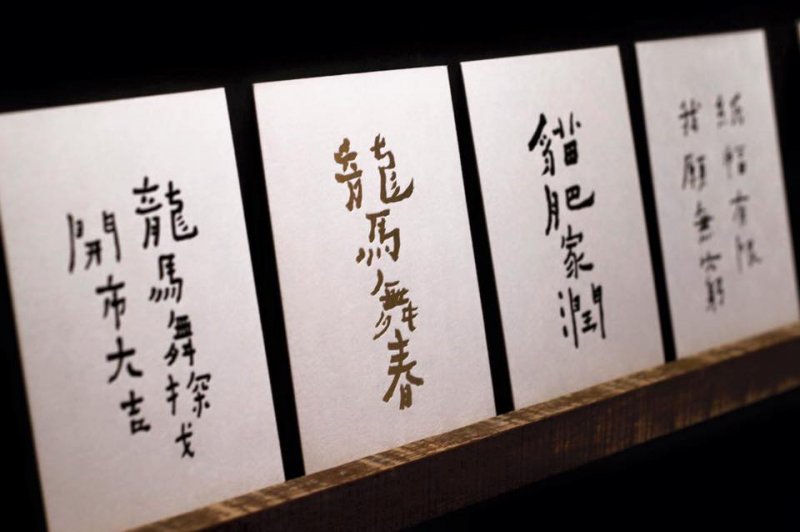 龍馬舞探戈
開市大吉
龍馬舞春
貓肥家潤
紙幅有限
我願無窮